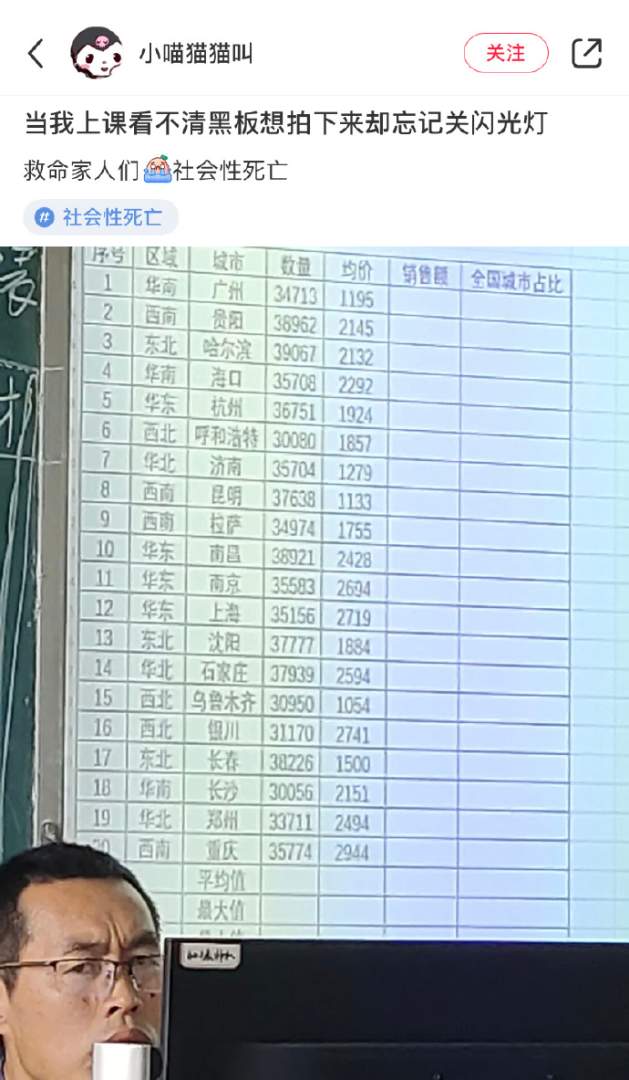 小喵猫猫叫
关注
当我上课看不清黑板想拍下来却忘记关闪光灯
救命家人们😭社会性死亡
# 社会性死亡
序号 区域 城市 数量 均价 销售额 全国城市占比
1 华南 广州 34713 1195
2 西南 贵阳 38962 2145
3 东北 哈尔滨 39067 2132
4 华南 海口 35708 2292
5 华东 杭州 36751 1924
6 西北 呼和浩特 30080 1857
7 华北 济南 35704 1279
8 西南 昆明 37638 1133
9 西南 拉萨 34974 1755
10 华东 南昌 38921 2428
11 华东 南京 35583 2694
12 华东 上海 35156 2719
13 东北 沈阳 37777 1884
14 华北 石家庄 37939 2594
15 西北 乌鲁木齐 30950 1054
16 西北 银川 31170 2741
17 东北 长春 38226 1500
18 华南 长沙 30056 2151
19 华北 郑州 33711 2494
20 西南 重庆 35774 2944
平均值
最大值